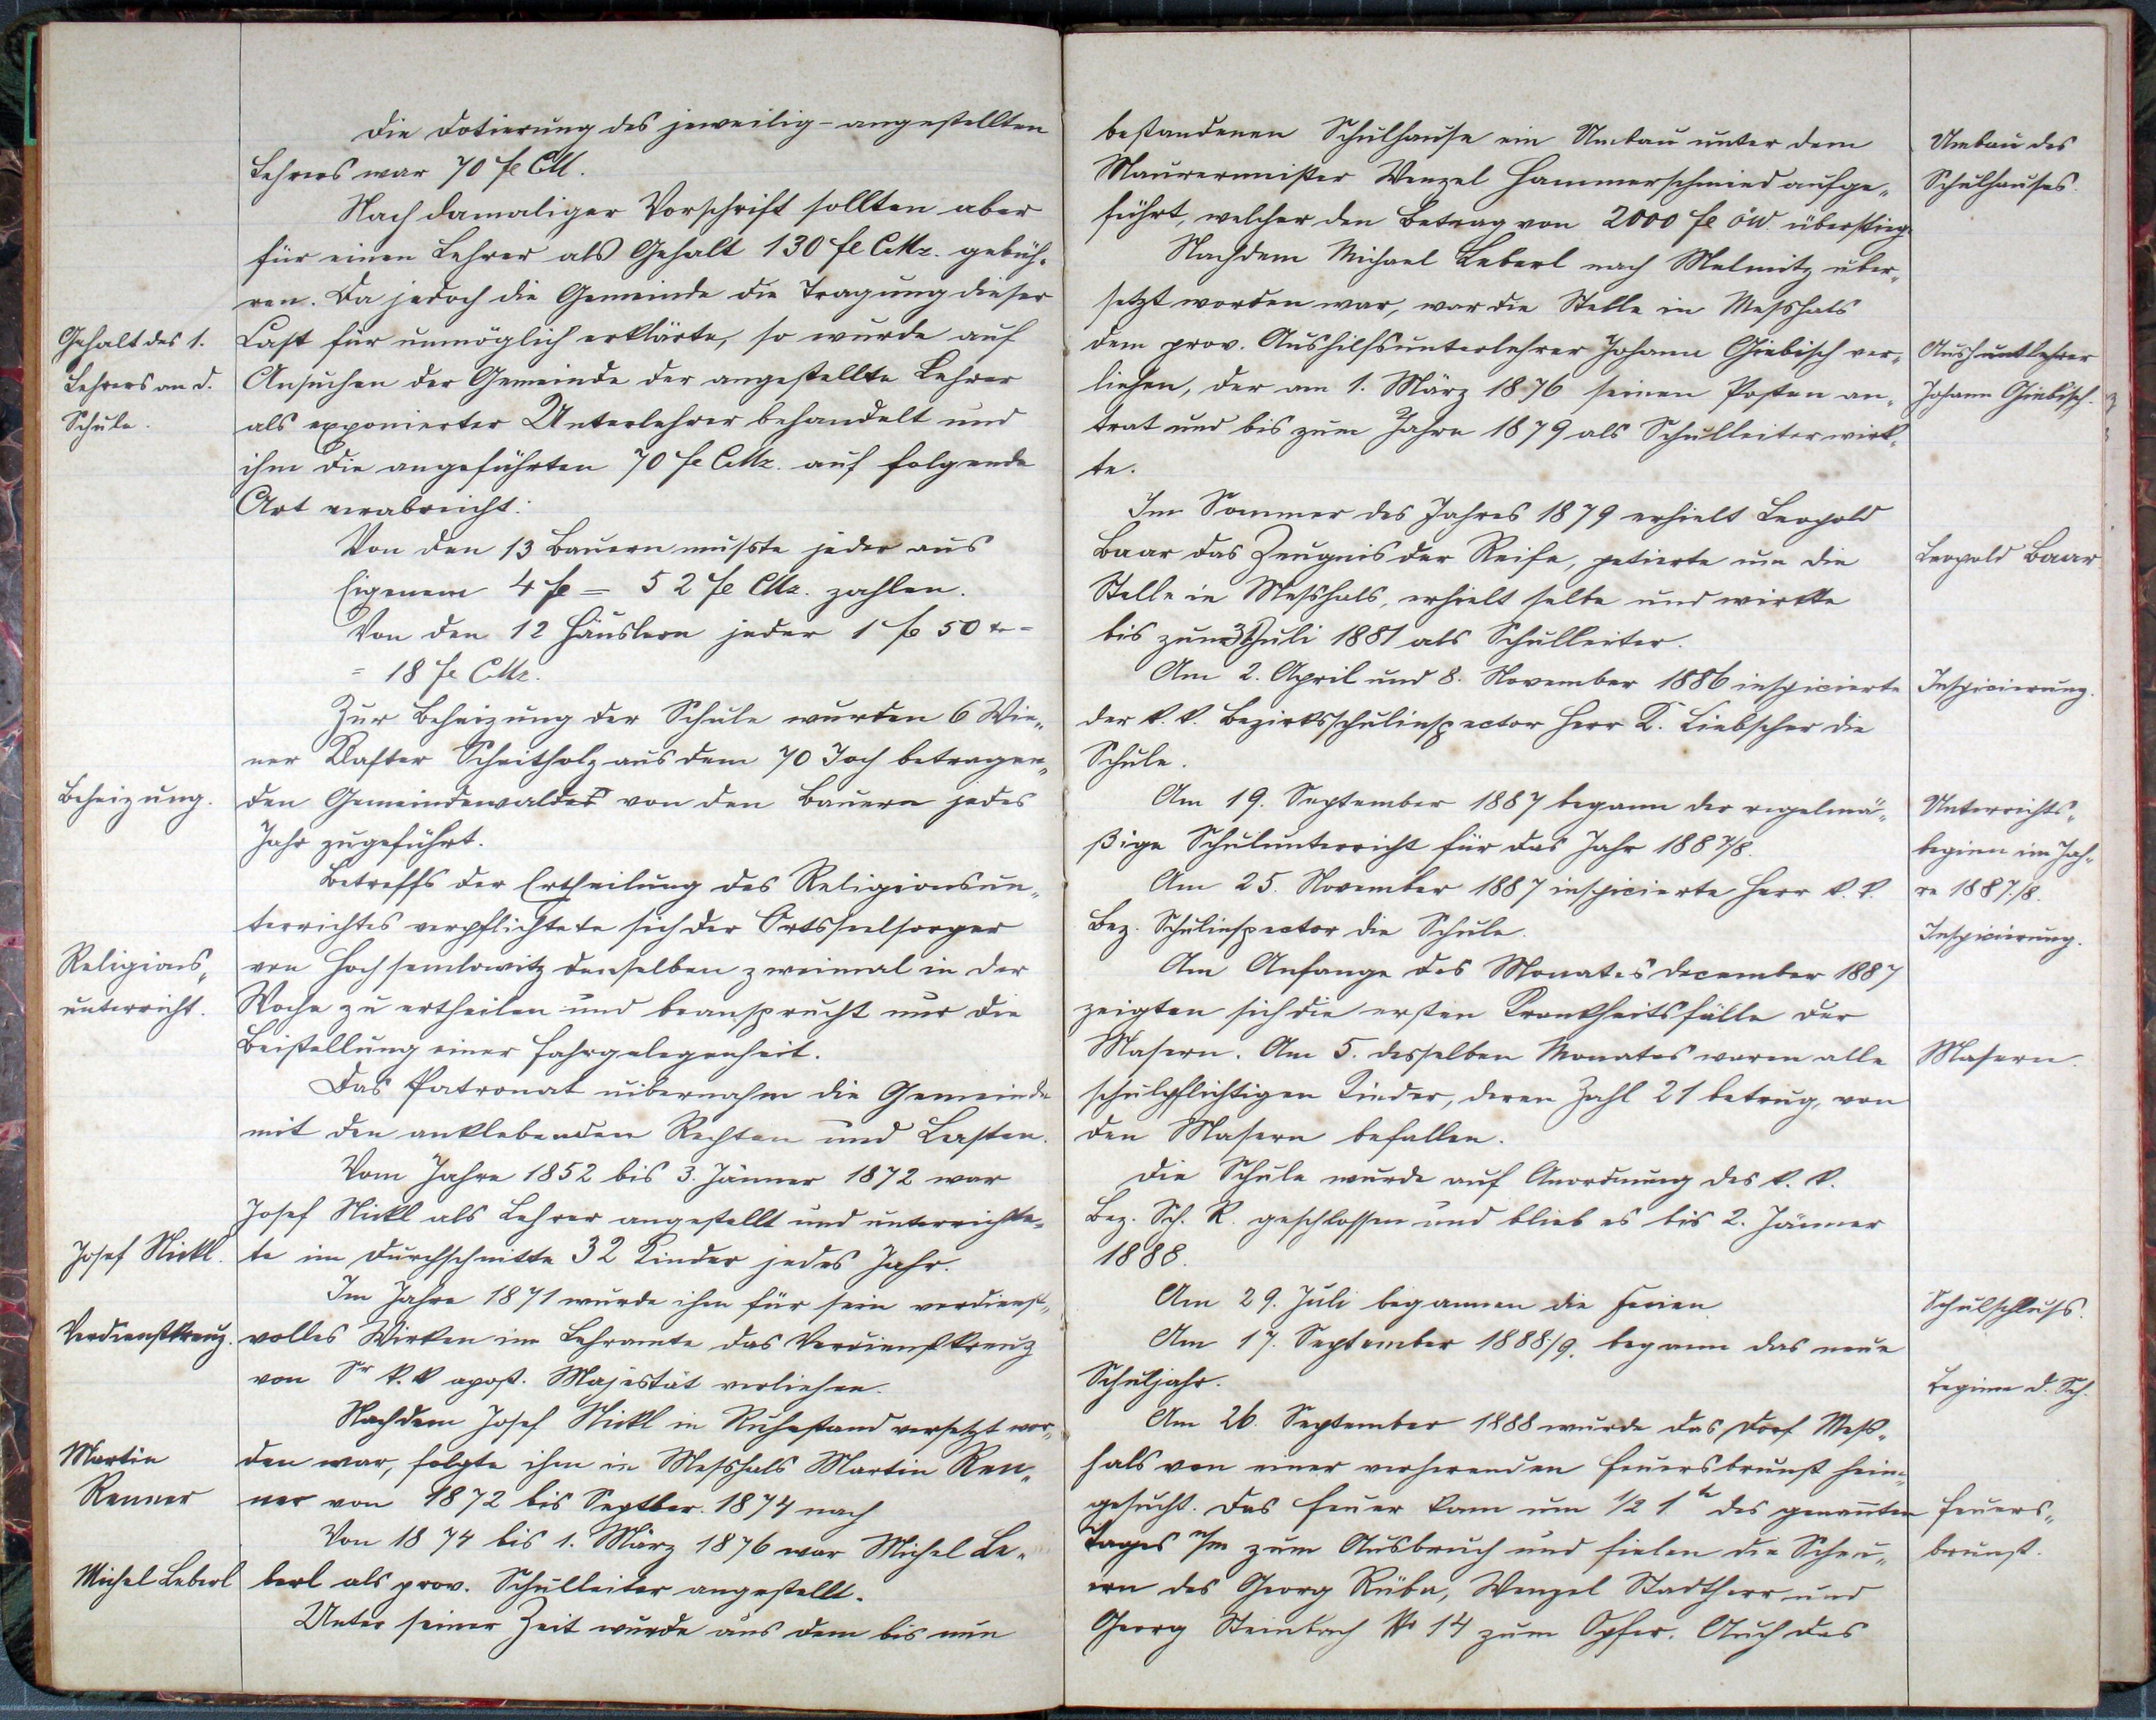 Die Dotierung des jeweilig-angestellten
Lehrers war 70 fl CM.
Nach damaliger Vorschrift sollten aber
für einen Lehrer als Gehalt 130 fl CMz. gebüh-
ren. Da jedoch die Gemeinde die Tragung dieser
Gehalt des 1.
Last für unmöglich erklärte, so wurde auf
Lehrers an d.
Ansuchen der Gemeinde der angestellte Lehrer
Schule.
als exponierter Unterlehrer behandelt und
ihm die angeführten 70 fl CMz. auf folgende
Art verabreicht:
Von den 13 Bauern mußte jeder aus
Eigenem 4 fl = 52 fl CMz. zahlen.
Von den 12 Häuslern jeder 1 fl 50 kr =
= 18 fl CMz.
Zur Beheizung der Schule wurden 6 Wie-
ner Klafter Scheitholz aus dem 70 Joch betragen-
Beheizung.
den Gemeindewalde von den Bauern jedes
Jahr zugeführt.
Betreffs der Ertheilung des Religionsun-
terrichtes verpflichtete sich der Ortsseelsorger
Religions-
von Hochsemlowitz denselben zweimal in der
unterricht.
Woche zu ertheilen und beansprucht nur die
Beistellung einer Fahrgelegenheit.
Das Patronat übernahm die Gemeinde
mit den anklebenden Rechten und Lasten.
Vom Jahre 1852 bis 3. Jänner 1872 war
Josef Nickl als Lehrer angestellt und unterrichte-
Josef Nickl.
te im Durchschnitte 32 Kinder jedes Jahr.
Im Jahre 1871 wurde ihm für sein verdienst-
Verdienstkreuz.
volles Wirken im Lehramte das Verdienstkreuz
von Sr k. k apost. Majestät verliehen.
Nachdem Josef Nickl in Ruhestand versetzt wor-
Martin
den war, folgte ihm in Meßhals Martin Ren-
Renner
ner von 1872 bis Septber. 1874 nach
Von 1874 bis 1. März 1876 war Michel Le-
Michel Leberl
berl als prov. Schulleiter angestellt.
Unter seiner Zeit wurde aus dem bis nun
bestandenen Schulhause ein Umbau unter dem
Umbau des
Maurermeister Wenzel Hammerschmied aufge-
Schulhauses.
führt, welcher den Betrag von 2000 fl öW. überstieg.
Nachdem Michael Leberl nach Melmitz über-
setzt worden war, war die Stelle in Meßhals
dem prov. Aushilfsunterlehrer Johann Giebisch ver-
Aushuntlehrer
liehen, der am 1. März 1876 seinen Posten an-
Johann Giebisch.
trat und bis zum Jahre 1879 als Schulleiter wirk-
te.
Im Sommer des Jahres 1879 erhielt Leopold
Baar das Zeugnis der Reife, petierte um die
Leopold Baar
Stelle in Meßhals, erhielt selbe und wirkte
bis zum 31 Juli 1881 als Schulleiter.
Am 2. April und 8. November 1886 inspicierte
Inspicierung.
der k. k. Bezirksschulinspector Herr K. Liebscher die
Schule.
Am 19. September 1887 begann der regelmä-
Unterrichts-
ßige Schulunterricht für das Jahr 1887/8.
beginn im Jah-
Am 25. November 1887 inspicierte Herr k. k.
re 1887/8.
Bez. Schulinspector die Schule.
Inspicierung.
Am Anfange des Monates December 1887
zeigten sich die ersten Krankheitsfälle der
Masern. Am 5. desselben Monates waren alle
Masern.
schulpflichtigen Kinder, deren Zahl 21 betrug, von
den Masern befallen.
Die Schule wurde auf Anordnung des k. k.
Bez. Sch. R. geschlossen und blieb es bis 2. Jänner
1888.
Am 29. Juli begannen die Ferien
Schulschluß.
Am 17. September 1888/9. begann das neue
Schuljahr.
Beginn d. Sch.
Am 26. September 1888 wurde das Dorf Meß-
hals von einer verherenden Feuersbrunst heim-
gesucht. Das Feuer kam um 1/2 1 h des genannten
Feuers-
Tages zum Ausbruch und fielen die Scheu-
brunst.
ern des Georg Rüba, Wenzel Stadtherr und
Georg Steinbach No 14 zum Opfer. Auch das